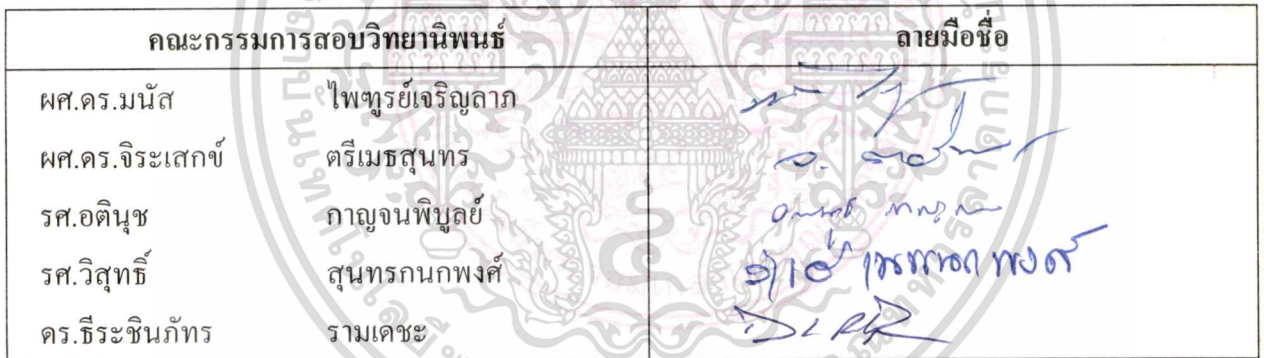 คณะกรรมการสอบวิทยานิพนธ์ ลายมือชื่อ
ผศ.ดร.มนัส ไพฑูรย์เจริญลาภ
ผศ.ดร.จิระเสกข์ ตรีเมธสุนทร
รศ.อตินุช กาญจนพิบูลย์
รศ.วิสุทธิ์ สุนทรกนกพงศ์
ดร.ธีระชินภัทร รามเดชะ